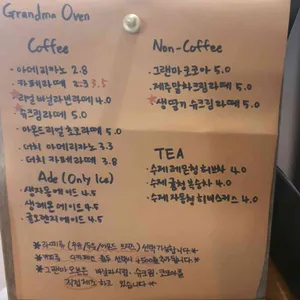 Grandma Oven
Coffee
· 아메리카노 2.8
· 카페라떼 3.5
* 리얼 바닐라빈라떼 4.0
* 슈크림라떼 5.0
· 아몬드리얼초코라떼 5.0
· 더치 아메리카노 3.3
· 더치 카페라떼 3.8
Ade (Only Ice)
· 생자몽에이드 4.5
· 생레몬에이드 4.5
· 귤오렌지에이드 4.5
Non-Coffee
· 그랜마코코아 5.0
· 제주말차크림라떼 5.0
* 생딸기 슈크림라떼 5.0
TEA
· 수제레몬청허브차 4.0
· 수제귤청복숭차 4.0
· 수제자몽청허니스키스 4.0
선택가능합니다.
선택시 +500
* 그랜마오븐은 바닐라시럽·슈크림·코코아를
직접제조하고 있습니다 *